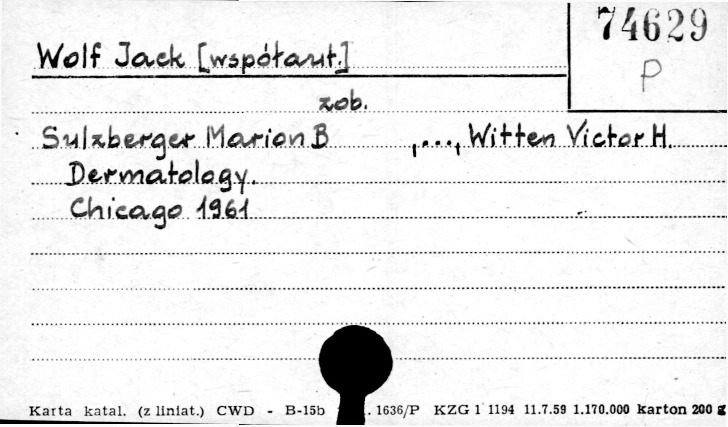 74629
Wolf Jack [współaut.]
P
zob.
Sulzberger Marion B ,..., Witten Victor H.
Dermatology.
Chicago 1961
Karta katal. (z liniat.) CWD - B-15b 1636/P KZG 1 1194 11.7.59 1.170.000 karton 200 g